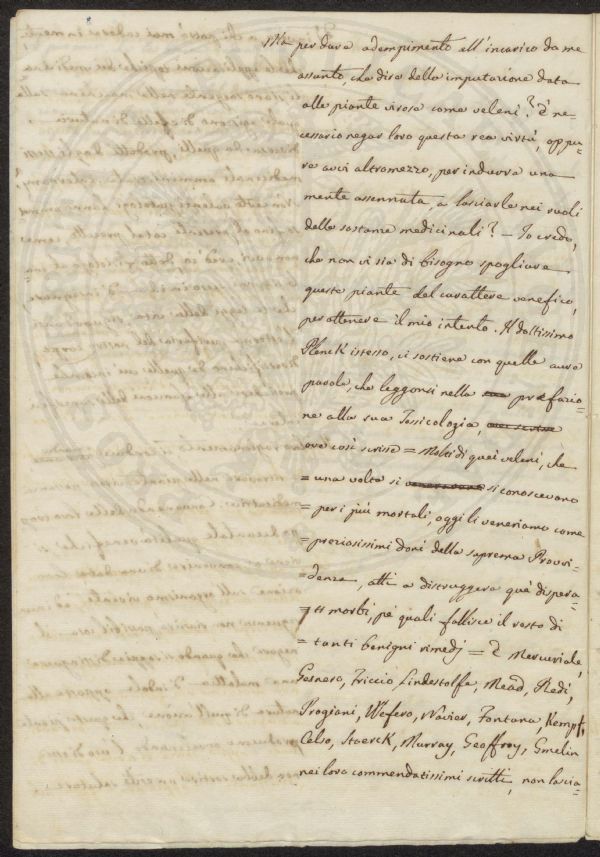 Ma per dare adempimento all'incarico da me
assunto, che dirò della imputazione data
alle piante virose come veleni? È ne=
cessario negar loro questa rea virtù, oppu=
re avvi altro mezzo, per indurre una
mente assennata, a lasciarle nei ruoli
delle sostanze medicinali? — Io credo,
che non vi sia di bisogno spogliare
queste piante del carattere venefico,
per ottenere il mio intento. Il dottissimo
Plenck istesso, ci sostiene con quelle auree
parole, che leggonsi nella prefazio=
ne alla sua Tossicologia,
ove così scrisse = Molti di quei veleni, che
= una volta si si conoscevano
= per i più mortali, oggi li veneriamo come
= preziosissimi doni della suprema Provvi=
= denza, atti a distruggere que' dispera=
= ti morbi, pe' quali fallisce il resto di
= tanti benigni rimedj = E Mercuriale,
Gesnero, Friccio, Lindestolfe, Mead, Redi,
Progiani, Wefero, Navier, Fontana, Kempf,
Celso, Stoerck, Murray, Geoffroy, Gmelin
nei loro commendatissimi scritti, non lascia=